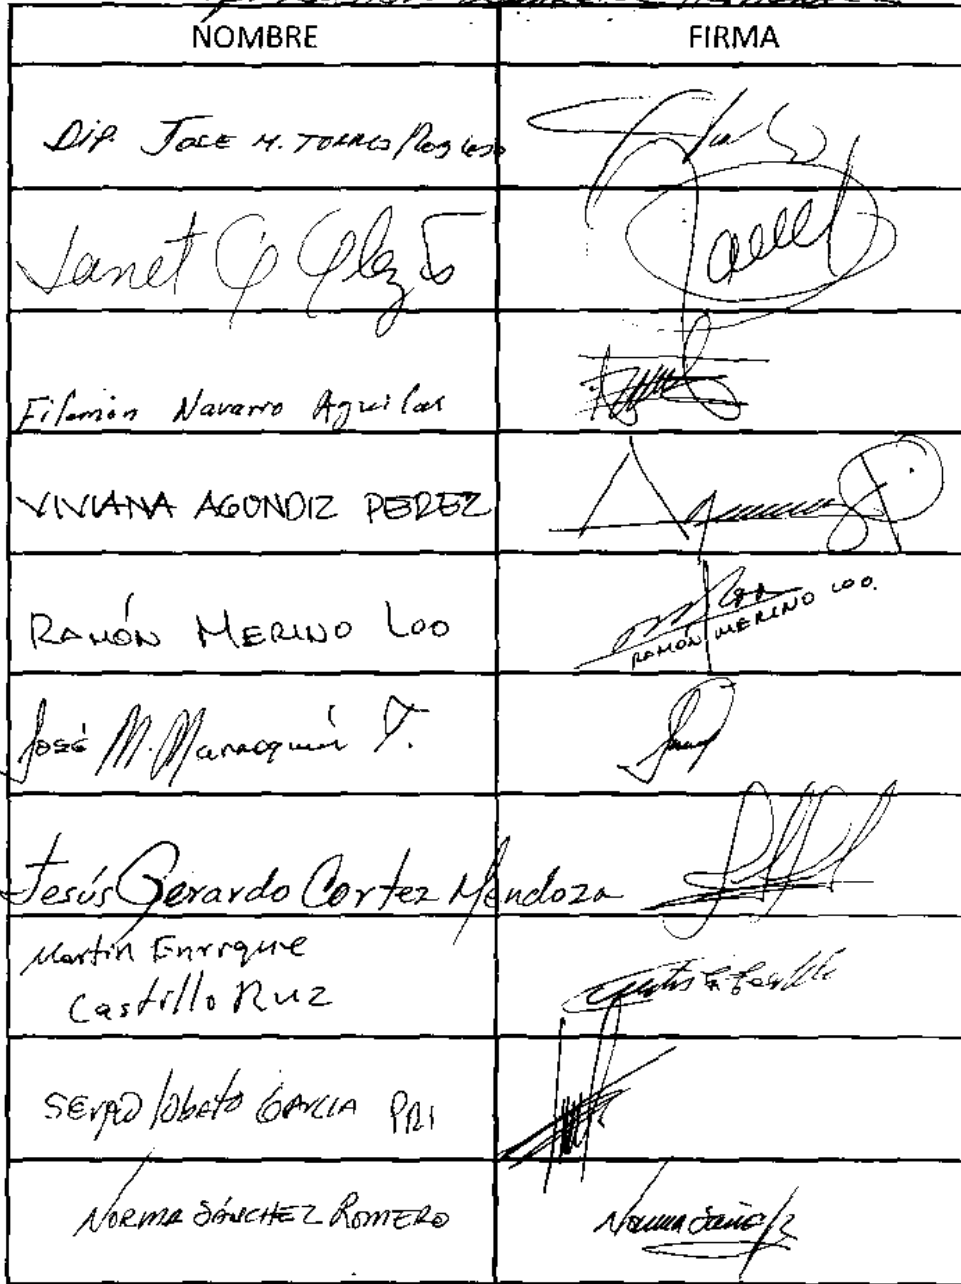 NOMBRE FIRMA
Dip. JOSE M. TORRES
Janet G Glez
Filemón Navarro Aguilar
VIVIANA AGUNDIZ PEREZ
RAMÓN MERINO LOO
RAMÓN MERINO LOO.
José M. Marroquín T.
Jesús Gerardo Cortez Mendoza
Martin Enrrique
Castillo Ruz
SERGIO lobato GARCIA PRI
NORMA SÁNCHEZ ROMERO